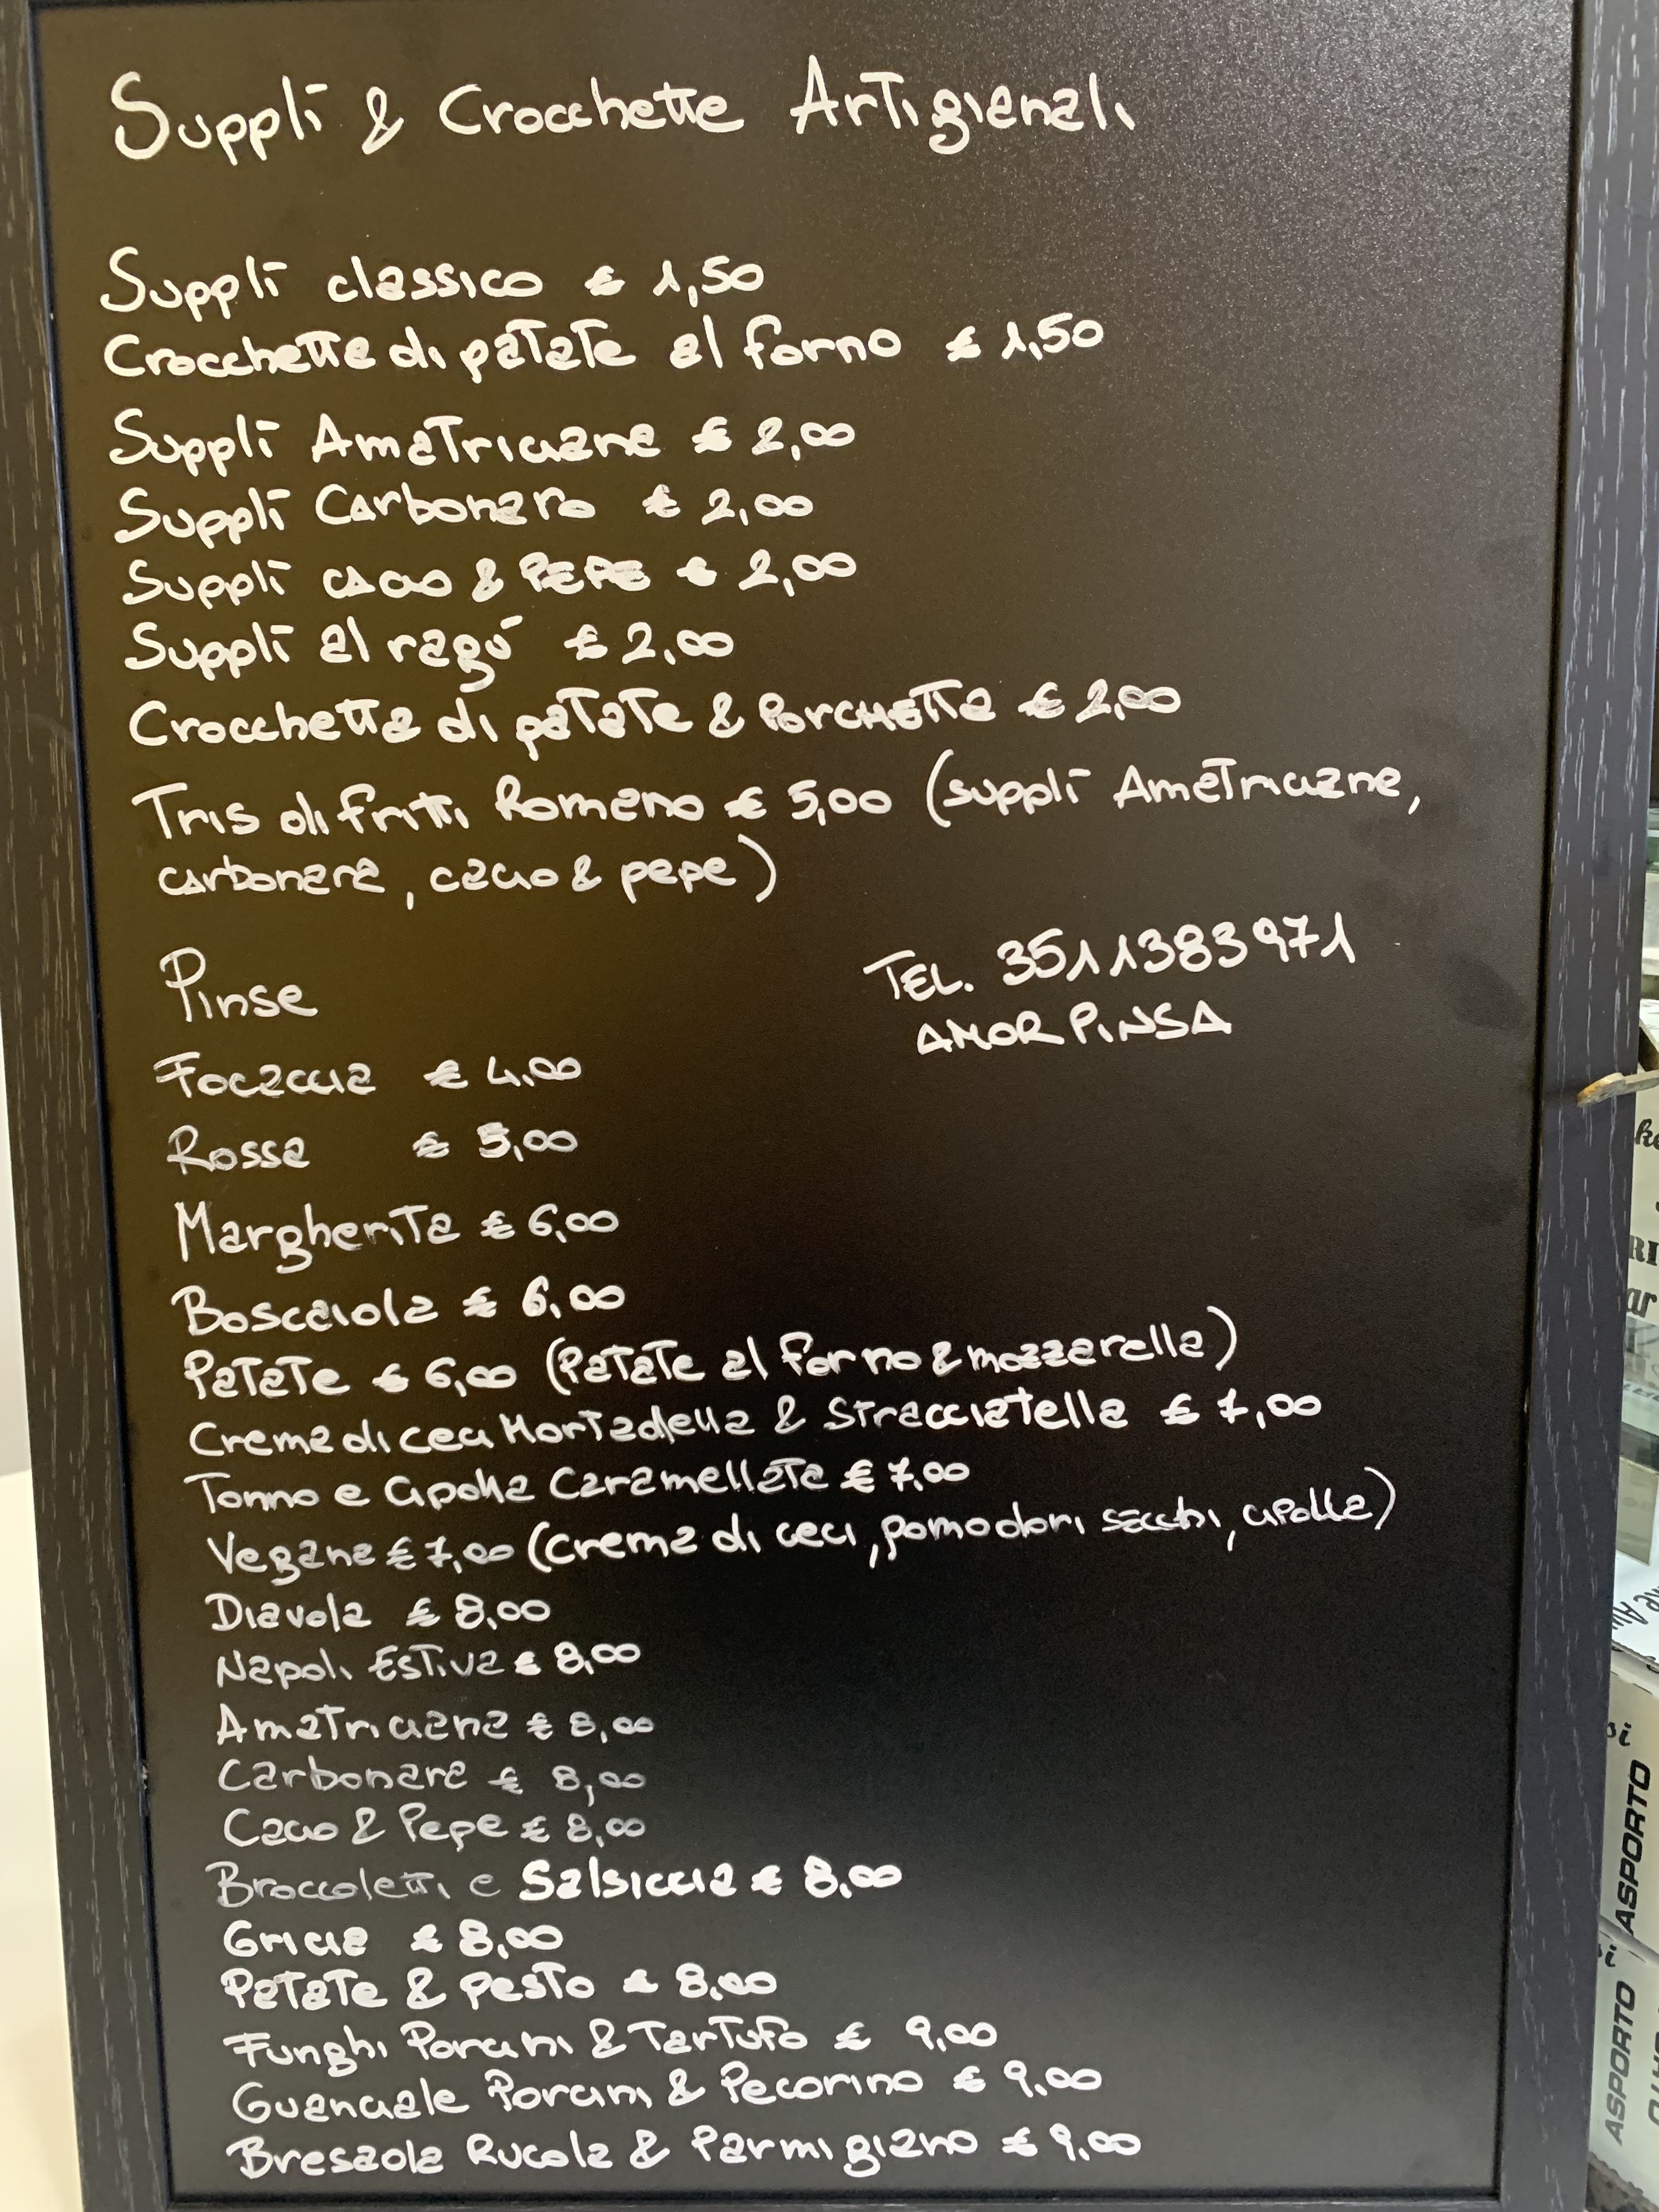 Supplì & Crocchette Artigianali
Supplì classico € 1,50
Crocchetta di patate al forno € 1,50
Supplì Amatriciana € 2,00
Supplì Carbonara € 2,00
Supplì cacio & PEPE € 2,00
Supplì al ragù € 2,00
Crocchetta di patate & Porchetta € 2,00
Tris di fritti Romano € 5,00 (supplì Amatriciana,
carbonara, cacio & pepe)
TEL. 3511383971
AMOR PINSA
Pinse
Focaccia € 4,00
Rossa € 5,00
Margherita € 6,00
Boscaiola € 6,00
Patate € 6,00 (Patate al forno & mozzarella)
Crema di ceci Mortadella & Stracciatella € 7,00
Tonno e Cipolla Caramellata € 7,00
Vegana € 7,00 (crema di ceci, pomodori secchi, cipolla)
Diavola € 8,00
Napoli Estiva € 8,00
Amatriciana € 8,00
Carbonara € 8,00
Cacio & Pepe € 8,00
Broccoletti e Salsiccia € 8,00
Gricia € 8,00
Patate & pesto € 8,00
Funghi Porcini & Tartufo € 9,00
Guanciale Porcini & Pecorino € 9,00
Bresaola Rucola & Parmigiano € 9,00
ASPORTO
ASPORTO